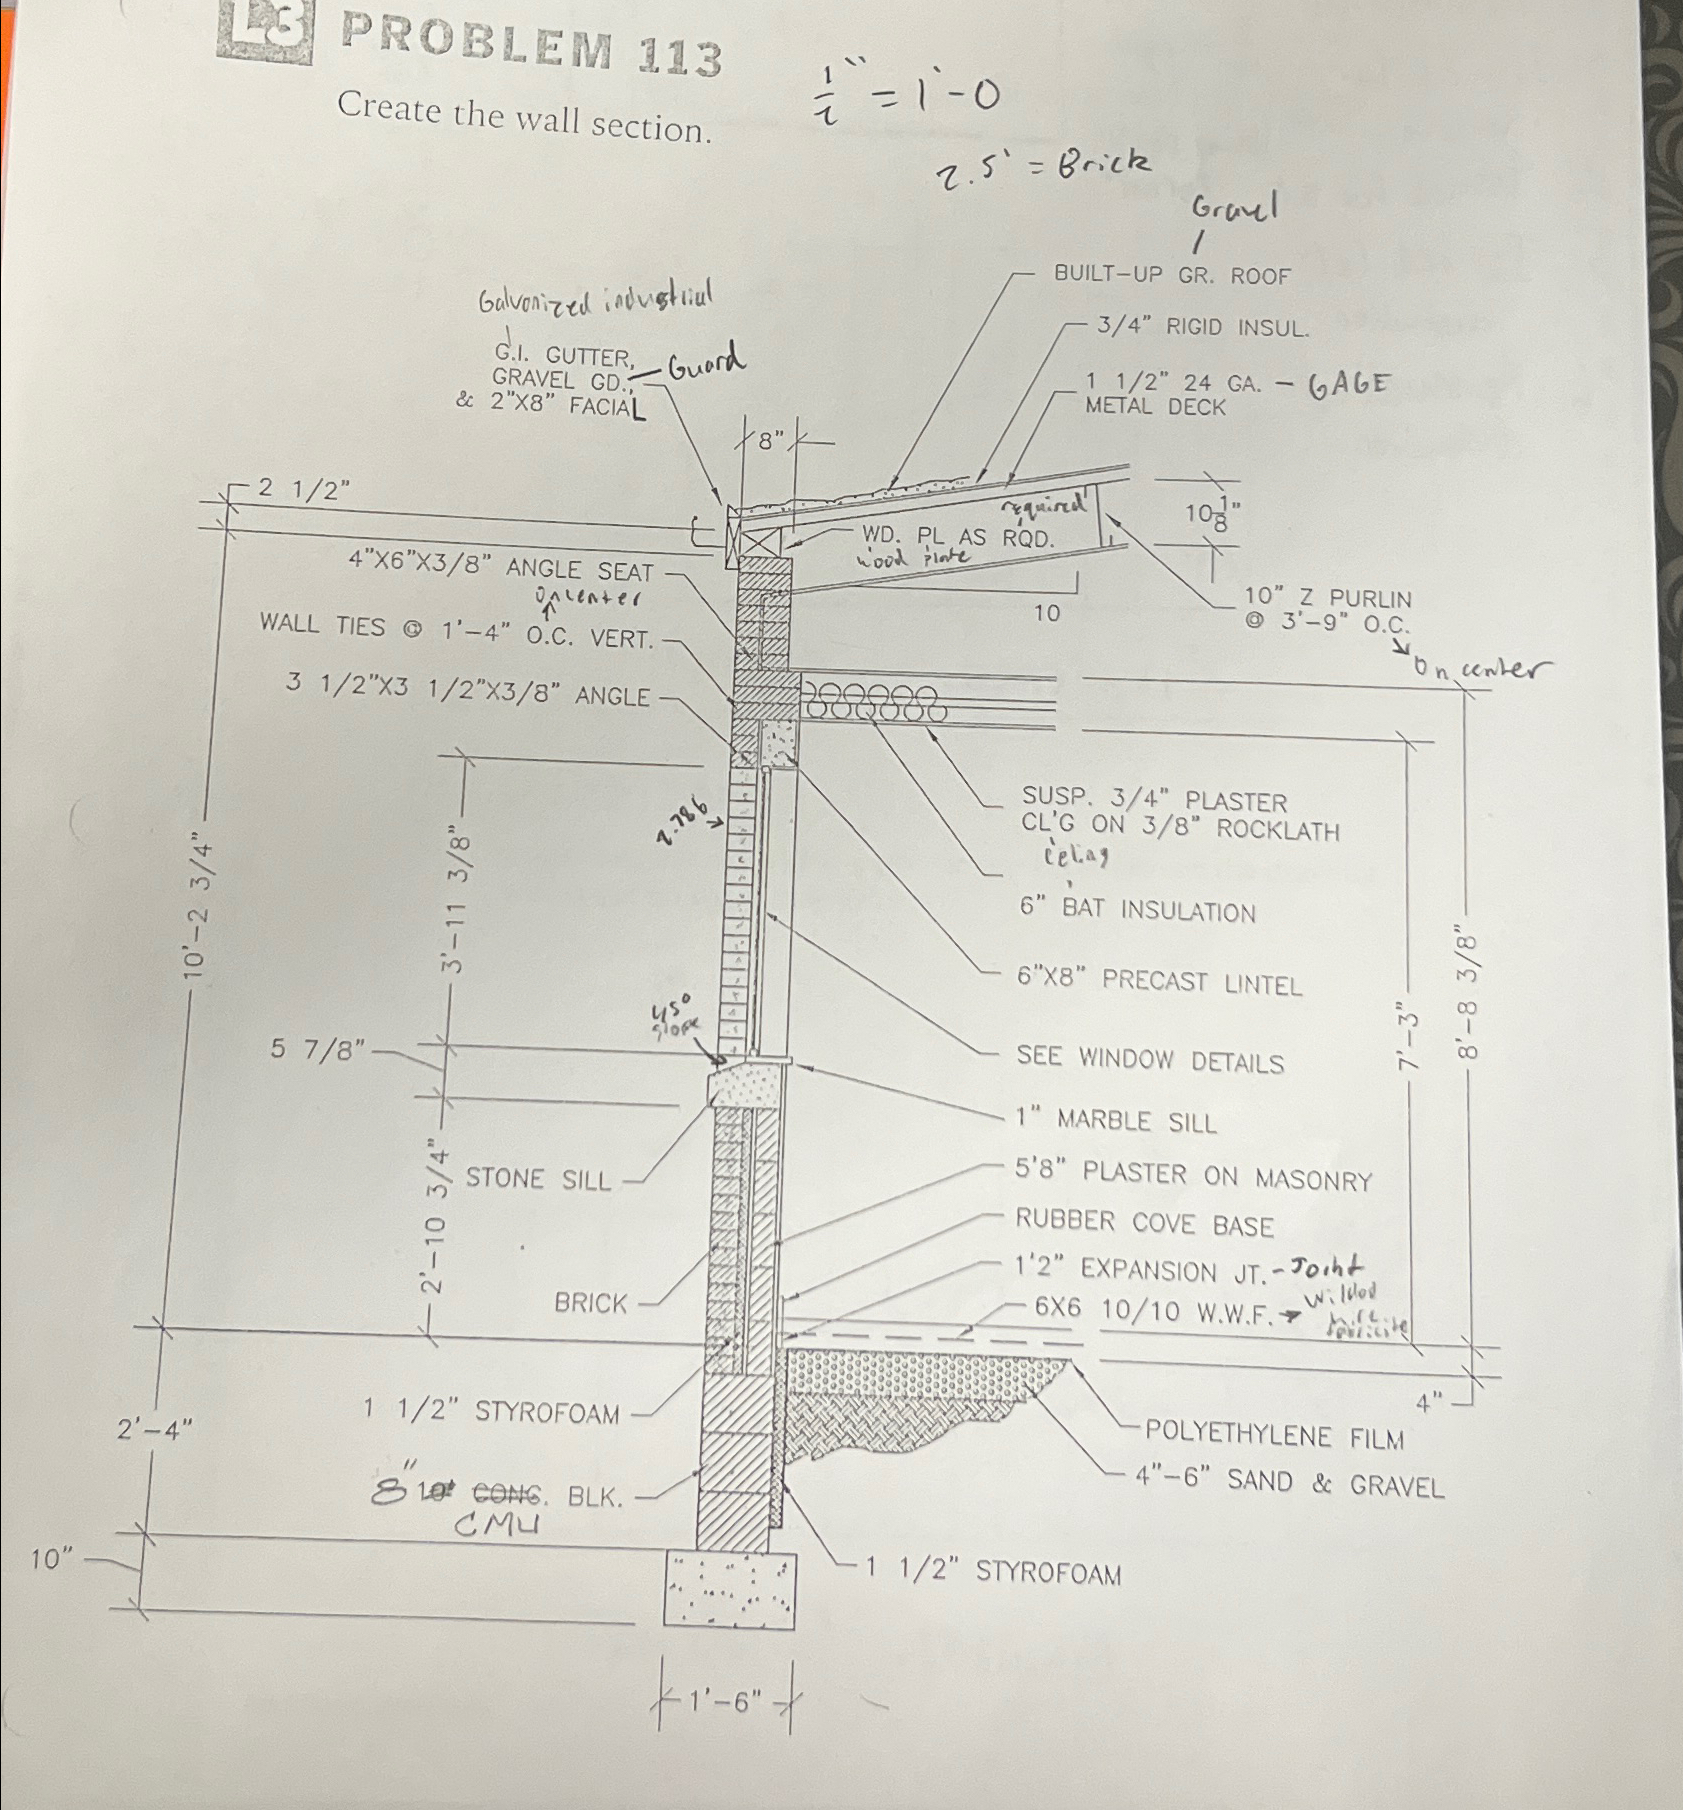 L3 PROBLEM 113
Create the wall section.
1/2" = 1'-0
2.5' = Brick
Gravel
BUILT-UP GR. ROOF
3/4" RIGID INSUL.
1 1/2" 24 GA. - GAGE
METAL DECK
Galvonized industrial
G.I. GUTTER,
GRAVEL GD., - Guard
& 2"X8" FACIAL
8"
2 1/2"
10 1/8"
required
WD. PL AS RQD.
wood plate
4"X6"X3/8" ANGLE SEAT
on center
WALL TIES @ 1'-4" O.C. VERT.
3 1/2"X3 1/2"X3/8" ANGLE
10
10" Z PURLIN
@ 3'-9" O.C.
On center
SUSP. 3/4" PLASTER
CL'G ON 3/8" ROCKLATH
6" BAT INSULATION
6"X8" PRECAST LINTEL
SEE WINDOW DETAILS
1" MARBLE SILL
5'8" PLASTER ON MASONRY
RUBBER COVE BASE
1'2" EXPANSION JT. - Joint
6X6 10/10 W.W.F.
POLYETHYLENE FILM
4"-6" SAND & GRAVEL
1 1/2" STYROFOAM
10'-2 3/4"
3'-11 3/8"
2.786
45°
slope
5 7/8"
2'-10 3/4"
STONE SILL
BRICK
1 1/2" STYROFOAM
8" 10" CONC. BLK.
CMU
2'-4"
10"
1'-6"
7'-3"
8'-8 3/8"
4"